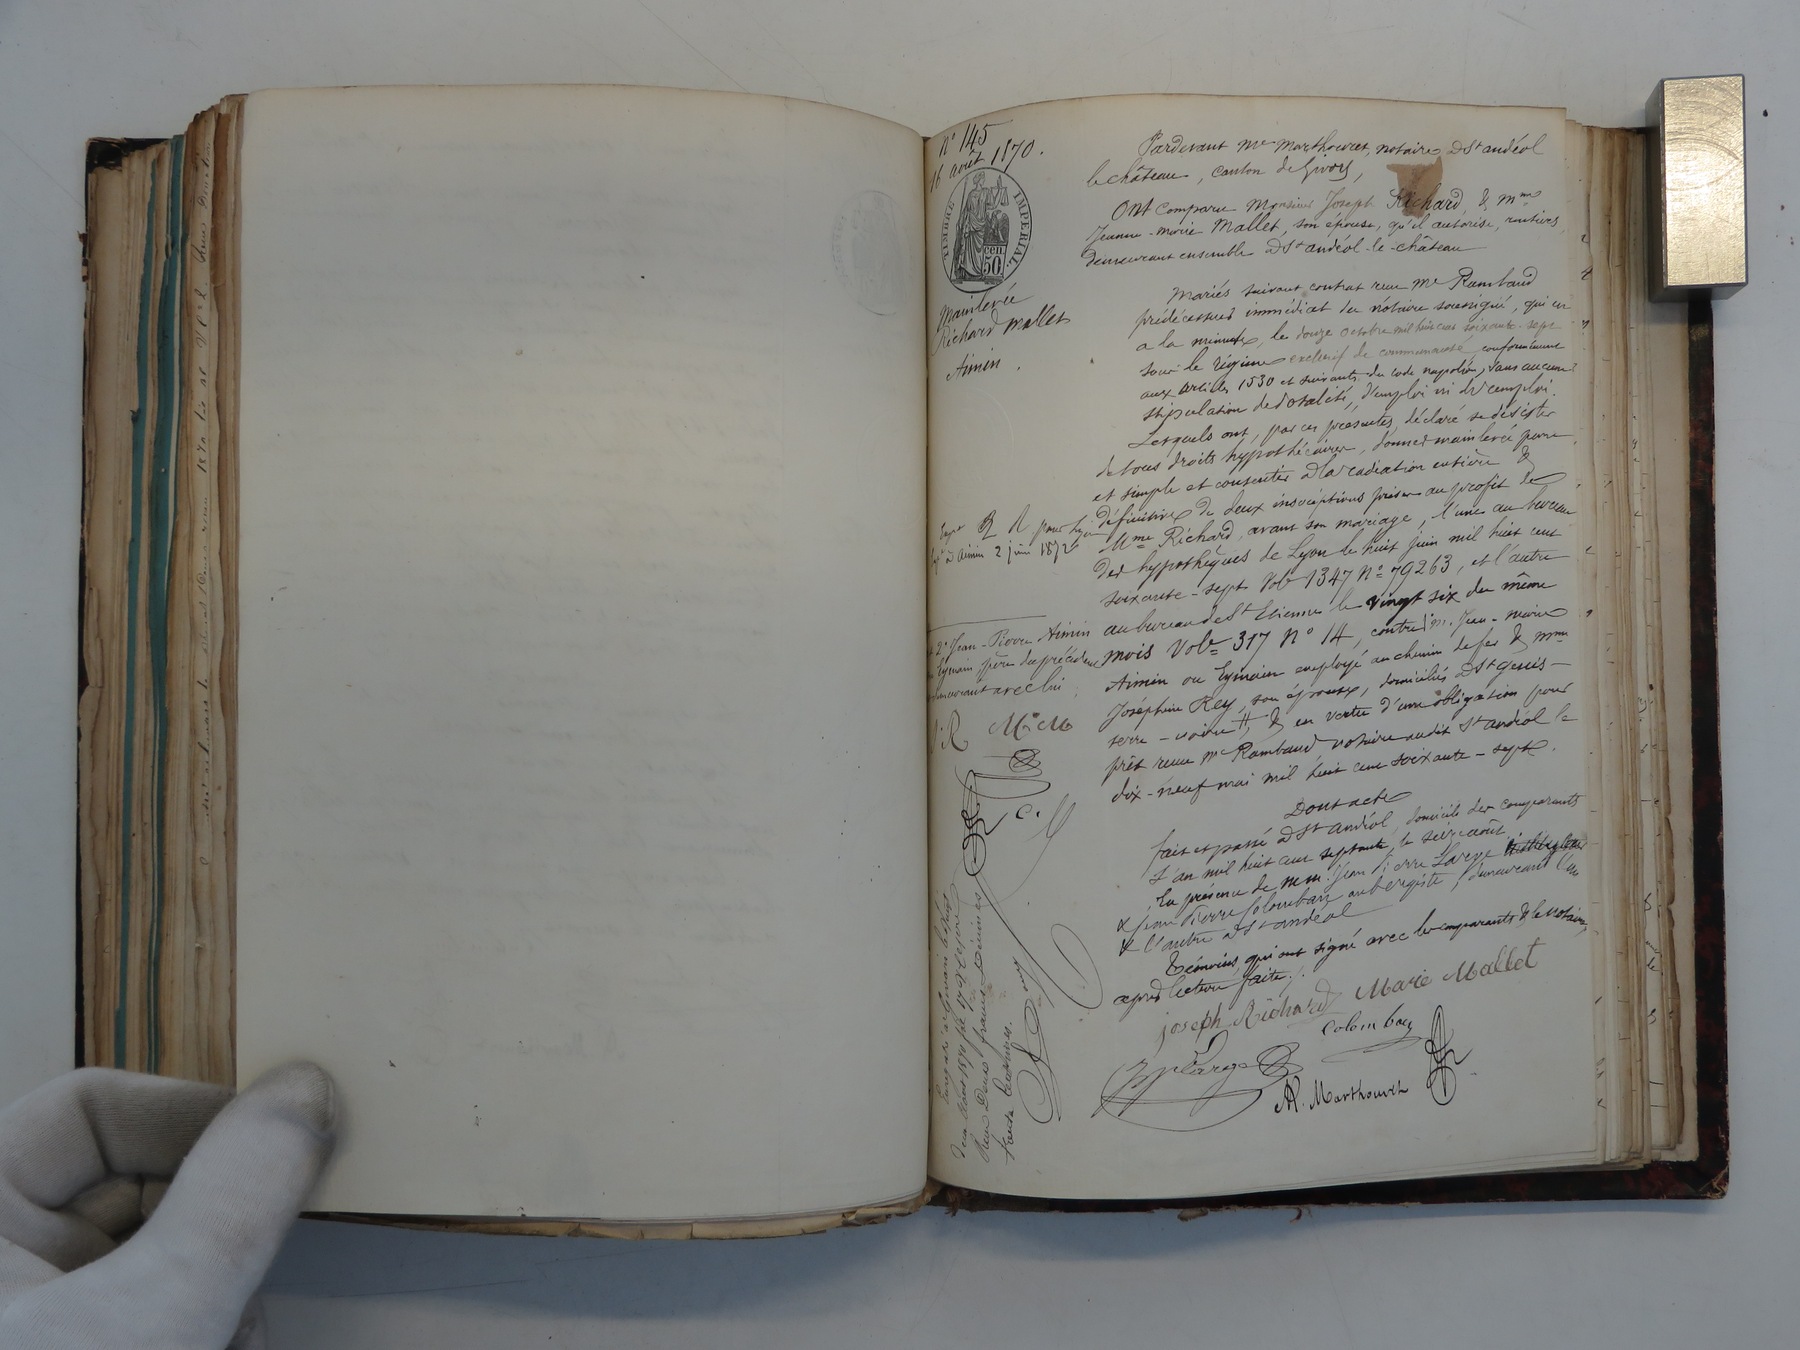 n° 145
16 août 1870.
TIMBRE IMPÉRIAL.
50 cen
Mainlevée
Richard Mallet
Aimin.
Pardevant Me Marthouret, notaire à St andéol
le château, canton de Givors,
Ont comparu Monsieur Joseph Richard & Mme
Jeanne-marie Mallet, son épouse, qu'il autorise, rentiers,
demeurant ensemble à St andéol-le-château
Mariés suivant contrat reçu Me Rambaud
prédécesseur immédiat du notaire soussigné, qui en
a la minute, le douze octobre mil huit cent soixante-sept
sous le régime exclusif de communauté, conformément
aux articles 1530 et suivants du code napoléon, sans aucune
stipulation de dotalité, d'emploi ni de remploi.
Lesquels ont, par ces présentes, déclaré se désister
de tous droits hypothécaires, donner mainlevée pure
et simple et consentir à la radiation entière &
définitive de deux inscriptions prises au profit de
Mme Richard, avant son mariage, l'une au bureau
des hypothèques de Lyon le huit juin mil huit cent
soixante-sept Vol 1347 N° 79263, et l'autre
au bureau de St Etienne le vingt six du même
mois Vol. 317 N° 14, contre 1° M. Jean-marie
Aimin ou Eymain employé au chemin de fer & Mme
Joséphine Rey, son épouse, domiciliés à St genis-
terre-noire, & en vertu d'une obligation pour
prêt reçue Me Rambaud notaire audit St andéol le
dix-neuf mai mil huit cent soixante-sept.
Dont acte
fait et passé à St andéol, domicile des comparants
L'an mil huit cent septante, le seize août
En présence de MM. Jean Pierre Large
& Jean Pierre Colombary aubergiste, demeurant l'un
& l'autre à St andéol
témoins, qui ont signé avec les comparants & le notaire,
après lecture faite.
Joseph Richard Marie Mallet
Colombary
JP Large
M. Marthouret
pour
à Aimin 2 juin 1872
2° Jean-Pierre Aimin
Eymain, père du précédent
demeurant avec lui
J. R M. M
C.
Enregistré à Givors
août 1870
Reçu Deux francs
trente centimes.